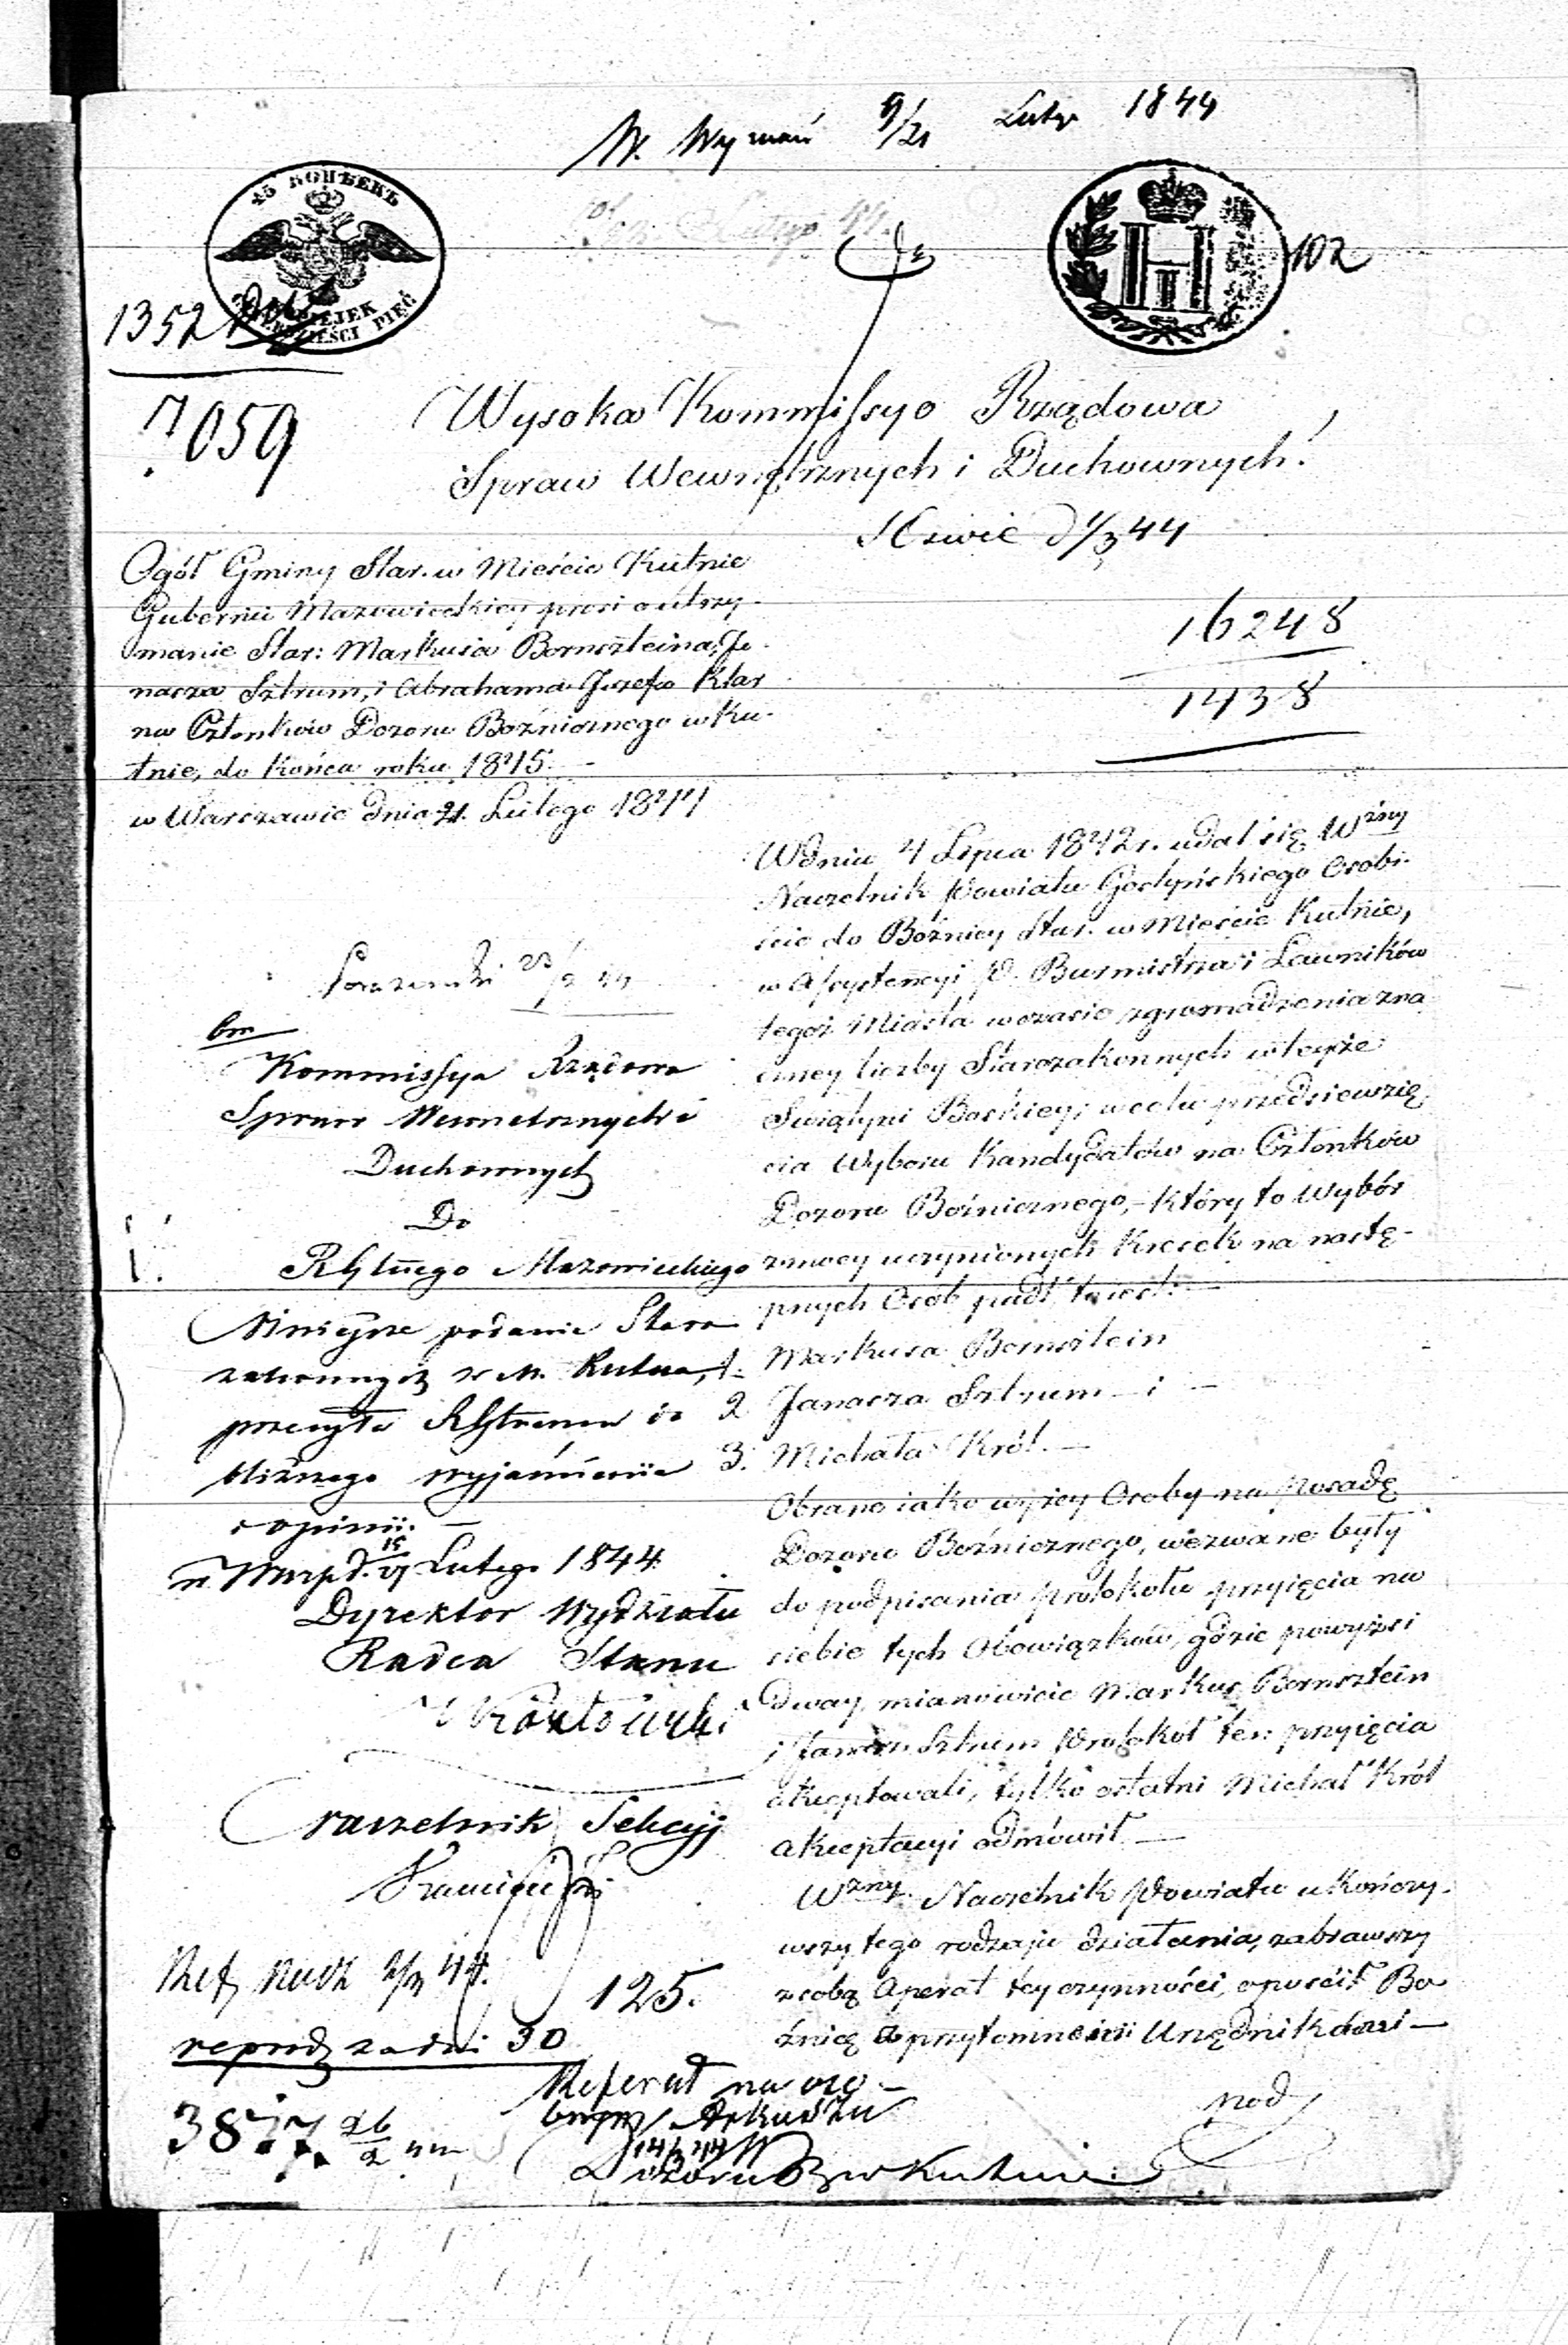 W. Wyznań 9/21 Lutego 1844
45 КОПѢЕКЪ
KOPIEJEK CZTERDZIEŚCI PIĘĆ
H
102
1352
7059
Wysoka Kommissyo Rządowa
Spraw Wewnętrznych i Duchownych!
1/3 44
16248
1438
Ogół Gminy Star. w Mieście Kutnie
Gubernii Mazowieckiey prosi o utrzy-
manie Star: Markusa Bornszteina, Ja-
nasza Sztrum, i Abrahama Jozefa Klar
na Członków Dozoru Bożnicznego w Ku-
tnie, do końca roku 1845.
w Warszawie dnia 21. Lutego 1844
23/2 44
Kommissya Rządowa
Spraw Wewnetrznych i
Duchownych
Do
Rządu Gub. Mazowieckiego
Ninieysze podanie Staro
zakonnych z M. Kutna,
przesyła Rządowi Gub. do
bliższego wyjaśnienia
i opinii. —
w Warsz. d. 15/27 Lutego 1844
Dyrektor Wydziału
Radca Stanu
Naczelnik Sekcyi
125.
reprod. za dni 30
3877. 26/2 44
Referat na oso-
bnym Arkuszu
14/3 44
Dozoru B. w Kutnie
W dniu 4 Lipca 1842 r. udał się Wżny
Naczelnik Powiatu Gostyńskiego osobi-
ście do Bożnicy Star. w Mieście Kutnie,
w Assystencyi P. Burmistrza i Ławników
tegoż Miasta w czasie zgromadzenia zna
czney liczby Starozakonnych w teyże
Swiątyni Boskiey, w celu przedsięwzię
cia Wyboru Kandydatów na Członków
Dozoru Bożnicznego, — który to Wybór
z mocy uczynionych kresek na nastę-
pnych Osób padł, to iest: —
1. Markusa Bornsztein
2 Janasza Sztrum — i —
3. Michała Król. —
Obrane iako wyżey Osoby na posadę
Dozoru Bożnicznego, wezwane były
do podpisania protokołu przyięcia na
siebie tych Obowiązków, gdzie powyżsi
dway, mianowicie Markus Bornsztein
i Janasz Sztrum Protokół ten przyięcia
akceptowali, tylko ostatni Michał Król
akceptacyi odmówił —
Wżny Naczelnik Powiatu ukończy-
wszy tego rodzaju działania, zabrawszy
z sobą Operat tey czynności, opuścił Bo
żnicę w przytomności Urzędników —
pod